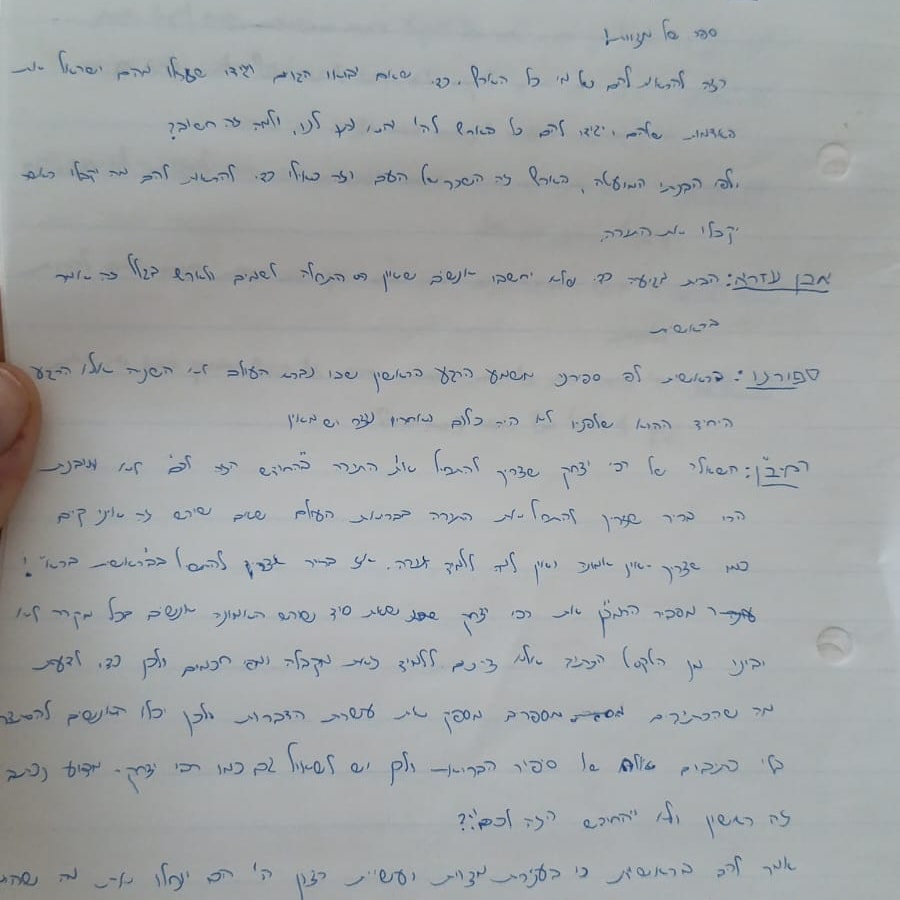 ספר של מצוות?
רצה להראות להם של מי כל הארץ. כדי שאם יבואו הגוים ויגידו שגזלו מהם ישראל את
האדמות שלהם, יגידו להם כל הארץ לה' והוא נתן לנו, ולמה זה חשוב?
ולפי הבנתי המועטה, הארץ זה השכר של העם וזה כאילו כדי להראות להם מה יקבלו כאשר
יקבלו את התורה.
אבן עזרא: הבית מגיעה כדי שלא יחשבו אנשים שאין התחלה לשמים ולארץ בגלל זה אמר
בראשית
ספורנו: בראשית לפי ספורנו משמע הרגע הראשון שבו נברא העולם לא השנה אלא הרגע
היחיד ההוא שלפניו לא היה כלום ואחריו נוצר יש מאין
רמב"ן: השאלה של רבי יצחק שצריך להתחיל את התורה ב"החודש הזה לכם" לא מובנת
הרי ברור שצריך להתחיל את התורה בבריאת העולם שאם שורש זה אינו קים
כמו שצריך אין אמונה ואין למה ללמד תורה. אז ברור שצריך להתחיל ב"בראשית ברא"!
מסביר הרמב"ן את רבי יצחק שאת סוד ושורש האמונה אנשים בכל מקרה לא
יבינו מן הלקסט הכתוב אלא צריכים ללמוד זאת מקבלה ומפי חכמים ולכן כדי לדעת
מה שהכתובים מספרים מספק את עשרת הדברות ולכן יכלו האנשים להסתדר
בלי כתובים אלה של סיפור הבריאה ולכן יש לשאול גם כמו רבי יצחק - מדוע נכתב
זה ראשון ולא "החודש הזה לכם"?
אמר להם בראשית כי בעזרת מצוות ועשיית רצון ה' הם ינחלו את מה שהוא